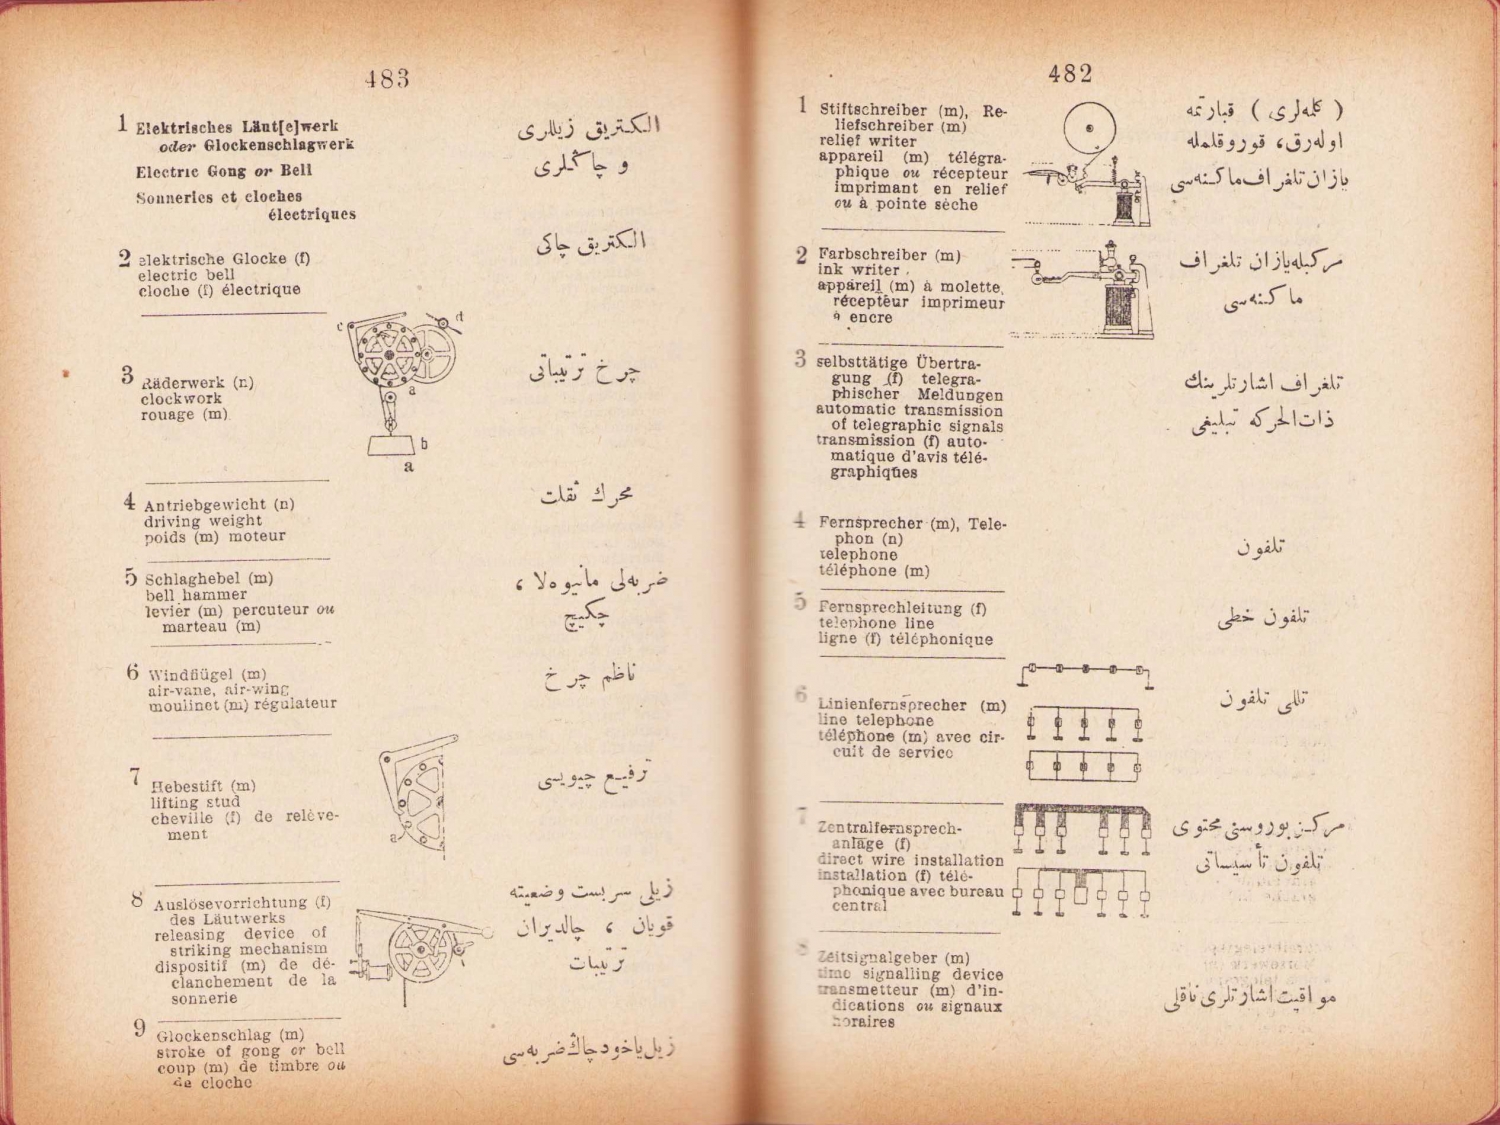 482
1 Stiftschreiber (m), Re-
liefschreiber (m)
relief writer
appareil (m) télégra-
phique ou récepteur
imprimant en relief
ou à pointe sèche
( كلمه‌لری ) قبارتمه
اوله‌رق، قورو قلمله
یازان تلغراف ماكنه‌سی
2 Farbschreiber (m)
ink writer
appareil (m) à molette,
récepteur imprimeur
à encre
مركبله یازان تلغراف
ماكنه‌سی
3 selbsttätige Übertra-
gung (f) telegra-
phischer Meldungen
automatic transmission
of telegraphic signals
transmission (f) auto-
matique d'avis télé-
graphiques
تلغراف اشارتلرینك
ذات‌الحركه تبلیغی
4 Fernsprecher (m), Tele-
phon (n)
telephone
téléphone (m)
تلفون
5 Fernsprechleitung (f)
telephone line
ligne (f) téléphonique
تلفون خطی
6 Linienfernsprecher (m)
line telephone
téléphone (m) avec cir-
cuit de service
تللی تلفون
7 Zentralfernsprech-
anlage (f)
direct wire installation
installation (f) télé-
phonique avec bureau
central
مركز بوروسنی محتوی
تلفون تأسیساتی
8 Zeitsignalgeber (m)
time signalling device
transmetteur (m) d'in-
dications ou signaux
horaires
مواقیت اشارتلری ناقلی
483
1 Elektrisches Läut[e]werk
oder Glockenschlagwerk
Electric Gong or Bell
Sonneries et cloches
électriques
الكتریق زیللری
و چاكلری
2 elektrische Glocke (f)
electric bell
cloche (f) électrique
الكتریق چاكی
3 Räderwerk (n)
clockwork
rouage (m)
c
d
a
b
a
چرخ ترتیباتی
4 Antriebgewicht (n)
driving weight
poids (m) moteur
محرك ثقلت
5 Schlaghebel (m)
bell hammer
levier (m) percuteur ou
marteau (m)
ضربه‌لی مانیوه‌لا ،
چكیچ
6 Windflügel (m)
air-vane, air-wing
moulinet (m) régulateur
ناظم چرخ
7 Hebestift (m)
lifting stud
cheville (f) de relève-
ment
a
ترفیع چیویسی
8 Auslösevorrichtung (f)
des Läutwerks
releasing device of
striking mechanism
dispositif (m) de dé-
clanchement de la
sonnerie
زیلی سربست وضعیته
قویان ، چالدیران
ترتیبات
9 Glockenschlag (m)
stroke of gong or bell
coup (m) de timbre ou
de cloche
زیل یاخود چاك ضربه‌سی